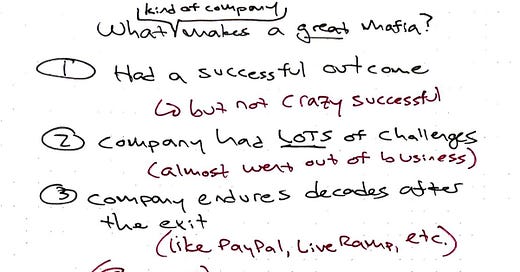 kind of company
What makes a great mafia?
1 Had a successful outcome
↳ but not crazy successful
2 company had LOTS of challenges
(almost went out of business)
3 company endures decades after
the exit
(like PayPal, LiveRamp, etc.)